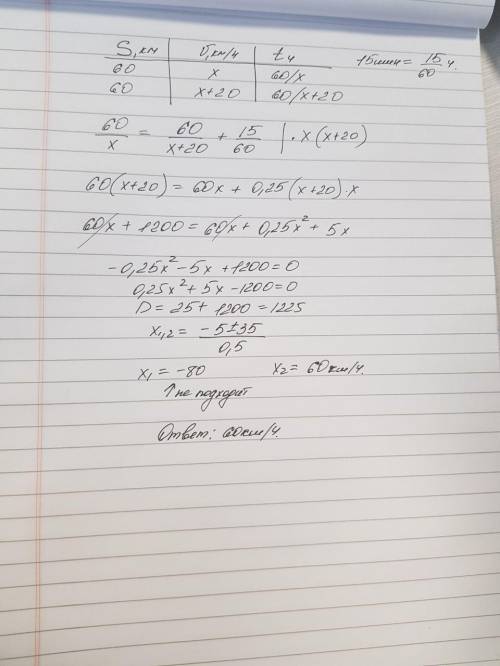 S, км	V, км/ч	t ч	15 мин = 15/60 ч.
60	x	60/x
60	x+20	60/x+20
60/x = 60/x+20 + 15/60 | · x (x+20)
60(x+20) = 60x + 0,25(x+20)·x
60x + 1200 = 60x + 0,25x² + 5x
-0,25x² - 5x + 1200 = 0
0,25x² + 5x - 1200 = 0
D = 25 + 1200 = 1225
x₁,₂ = -5±35/0,5
x₁ = -80	x₂ = 60 км/ч.
↑ не подходит
Ответ: 60 км/ч.